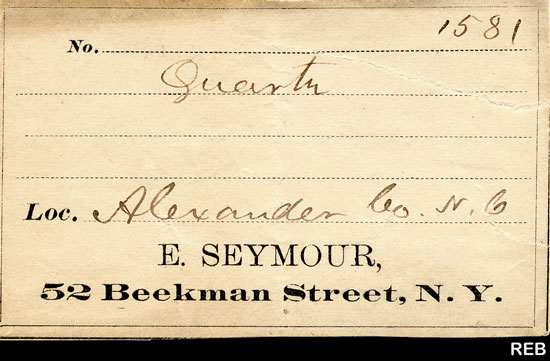 No. 1581
Quartz
Loc. Alexander Co. N. C
E. SEYMOUR,
52 Beekman Street, N. Y.
REB